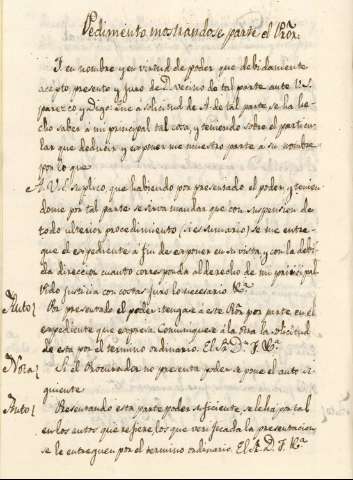 Pedimento mostrandose parte el Pror.
F. en nombre y en virtud de poder que debidamente
acepto, presento y juro de D. vecino de tal parte ante V.S.
parezco y digo: Que á solicitud de A. de tal parte se ha he-
cho saber á mi principal tal cosa, y teniendo sobre el particu-
lar que deducir y esponer me muestro parte á su nombre
por lo que
A V.S. suplico, que habiendo por presentado el poder, y tenien-
dome por tal parte se sirva mandar que con suspension de
todo ulterior procedimiento (si es sumario) se me entre-
gue el expediente á fin de esponer en su vista, y con la debi-
da direccion cuanto corresponda al derecho de mi principal
Pido justicia con costas juro lo necesario &a.
Auto Por presentado el poder tengase á este Pror. por parte en el
expediente que expresa. Comuniquese á la otra la solicitud
de esta por el termino ordinario. El Sr. Dn. F. &a.
Nota Si el Procurador no presenta poder se pone el auto si-
guiente
Auto Presentando esta parte poder suficiente, se le ha por tal
en los autos que refiere, los que verificada la presentacion,
se le entreguen por el termino ordinario. El Sr. D. F. &a.